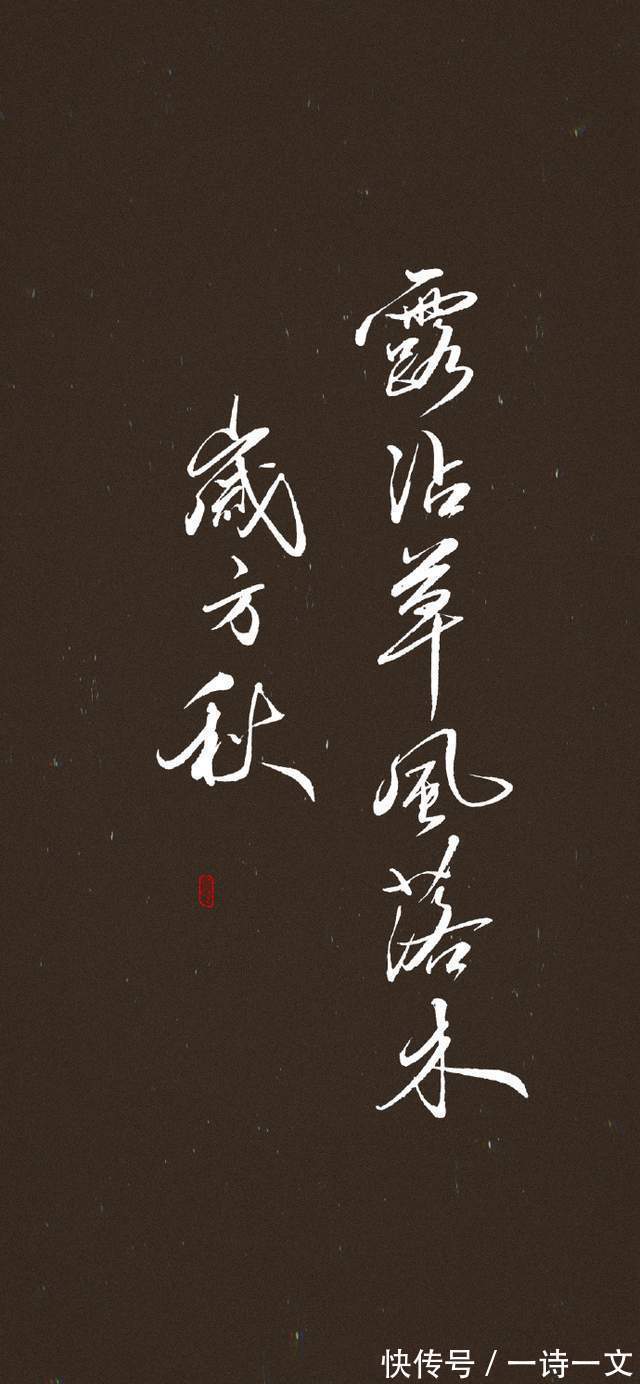 露沾草風落木
歲方秋
快传号 / 一诗一文